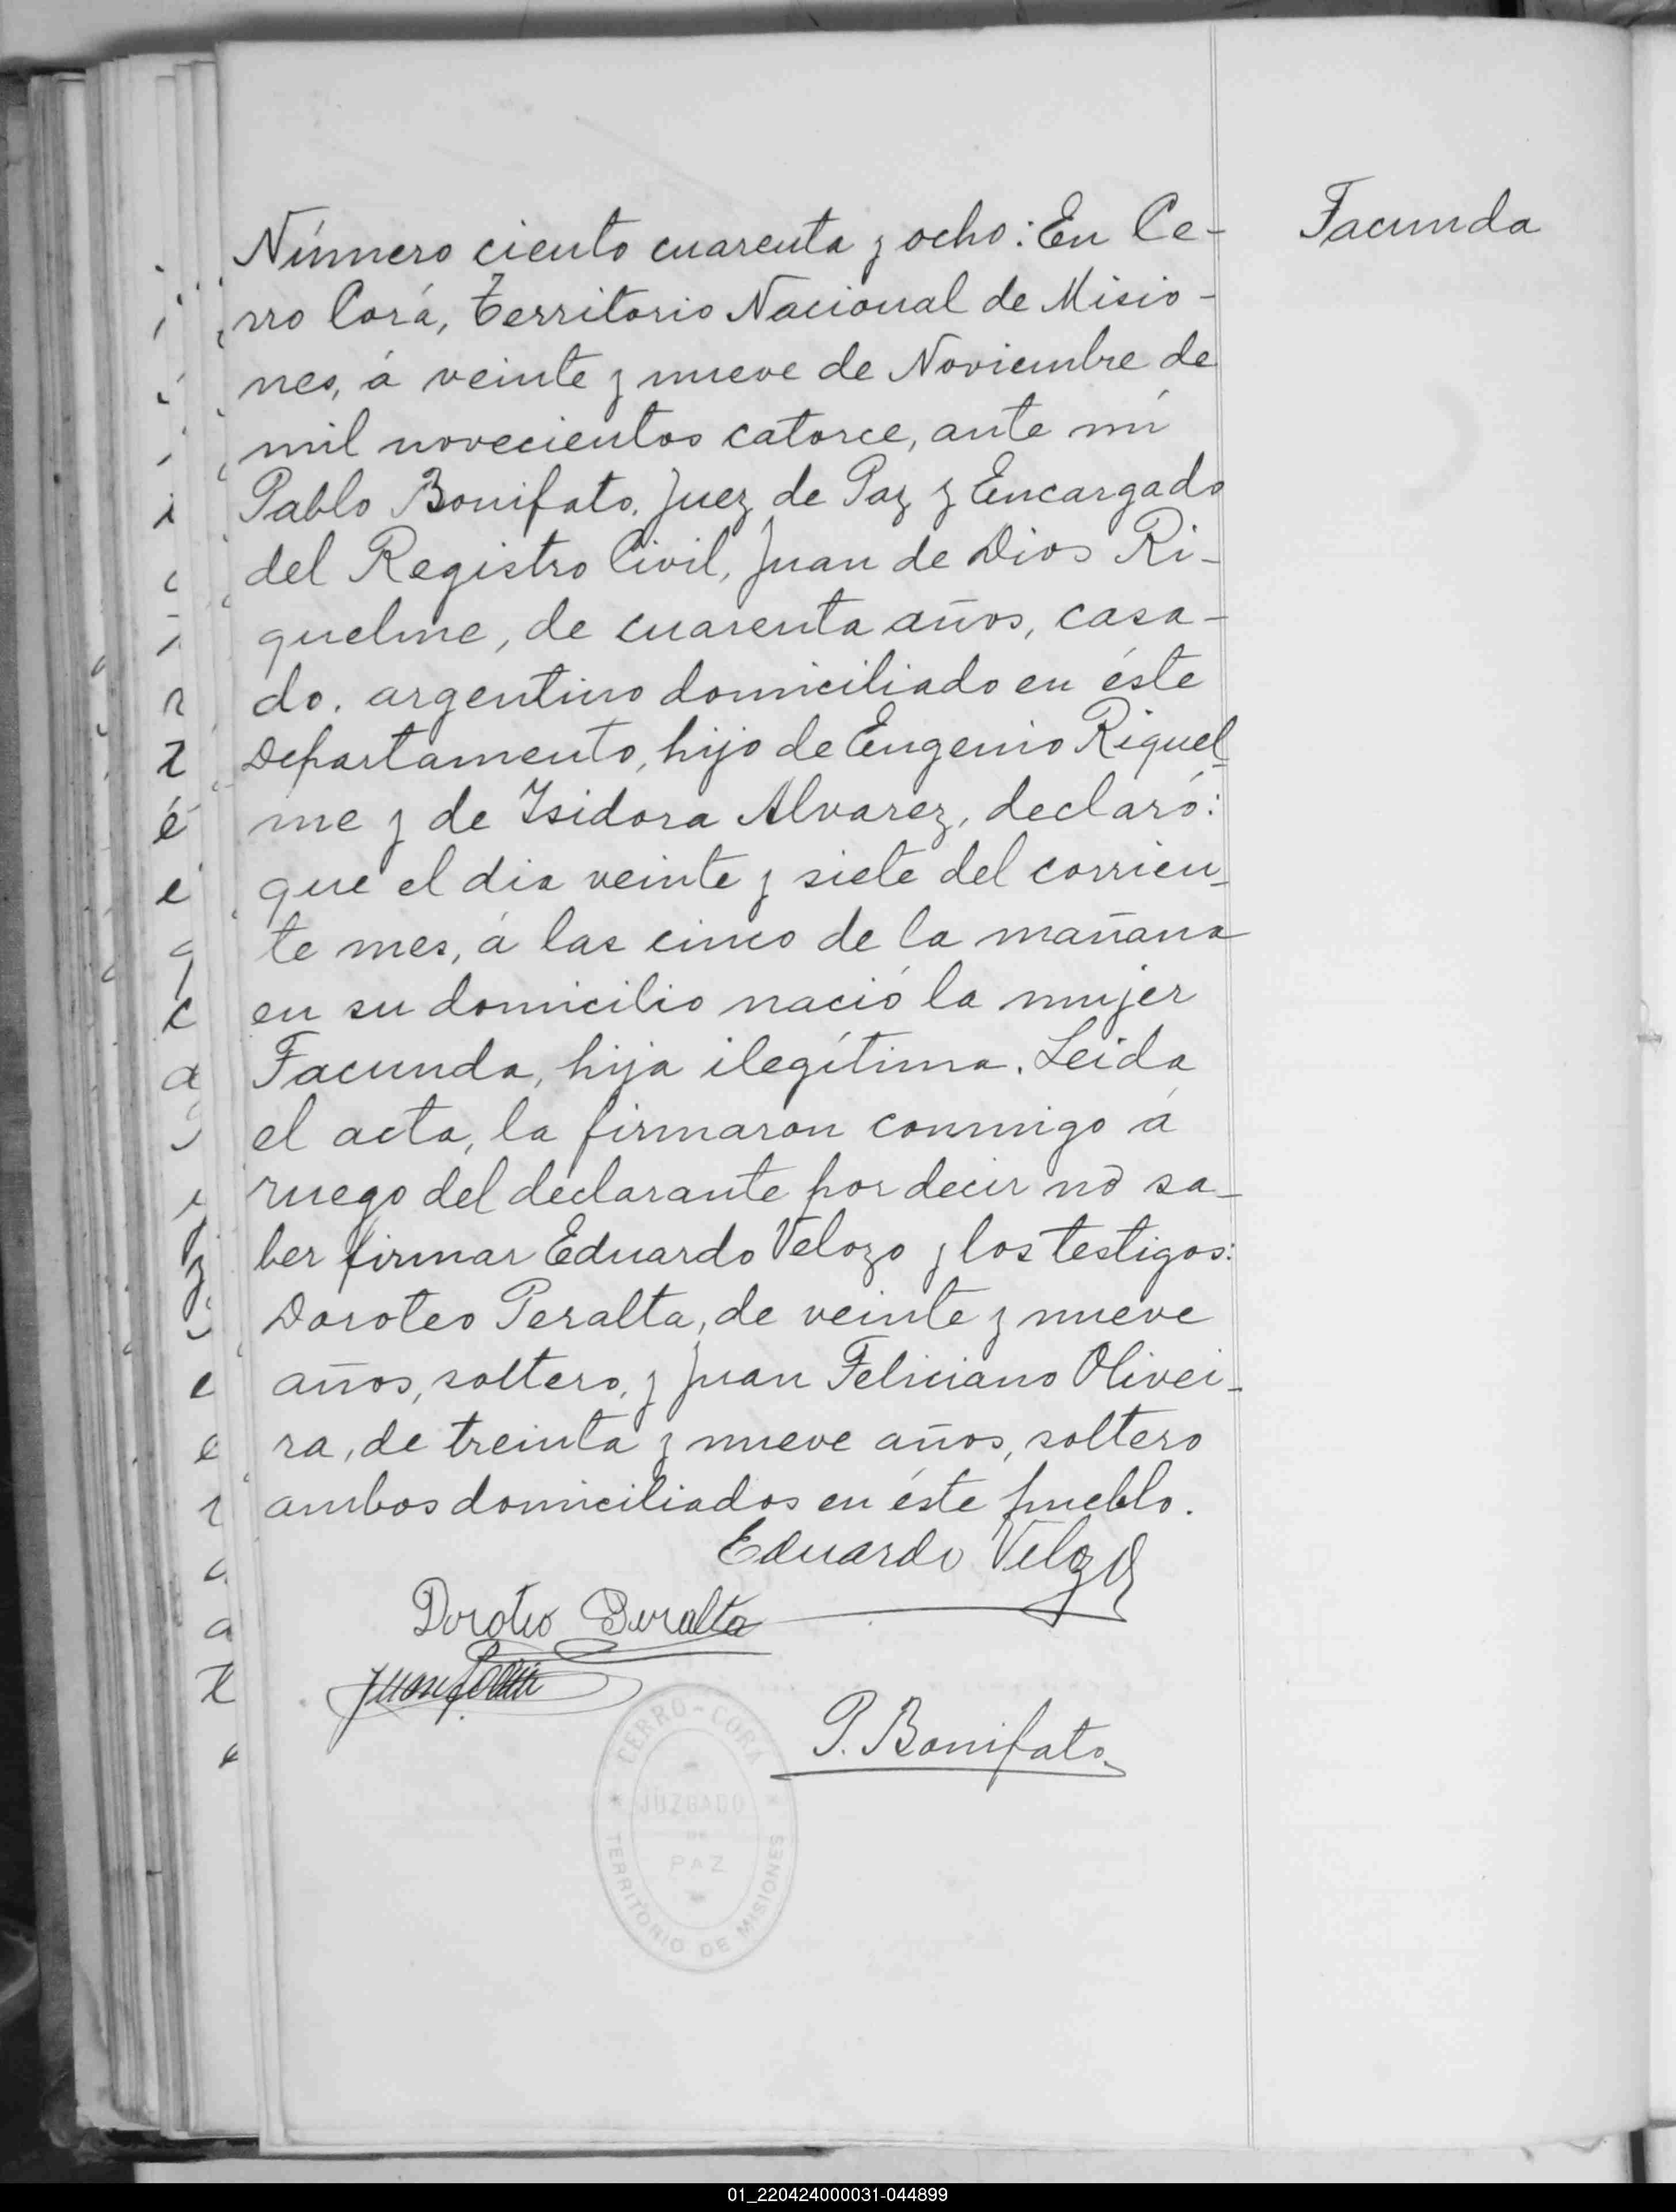 Facunda
Número ciento cuarenta y ocho: En Ce-
rro Corá, Territorio Nacional de Misio-
nes, á veinte y nueve de Noviembre de
mil novecientos catorce, ante mí
Pablo Bonifato, Juez de Paz y Encargado
del Registro Civil, Juan de Dios Ri-
quelme, de cuarenta años, casa-
do, argentino domiciliado en éste
Departamento, hijo de Eugenio Riquel-
me y de Isidora Alvarez, declaró:
que el dia veinte y siete del corrien-
te mes, á las cinco de la mañana
en su domicilio nació la mujer
Facunda, hija ilegítima. Leida
el acta, la firmaron conmigo á
ruego del declarante por decir no sa-
ber firmar Eduardo Velozo y los testigos:
Doroteo Peralta, de veinte y nueve
años, soltero, y Juan Feliciano Olivei-
ra, de treinta y nueve años, soltero
ambos domiciliados en éste pueblo.
Eduardo Velozo
Doroteo Peralta
P. Bonifato
CERRO-CORA
JUZGADO
DE
PAZ
TERRITORIO DE MISIONES
01_220424000031-044899